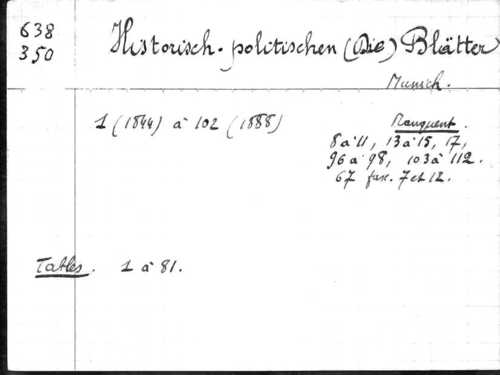 638
350
Historisch-politischen (Die) Blätter
Munich.
1 (1844) à 102 (1888)
Manquent.
8 à 11, 13 à 15, 17,
96 à 98, 103 à 112.
67 fasc. 7 et 12.
Tables. 1 à 81.